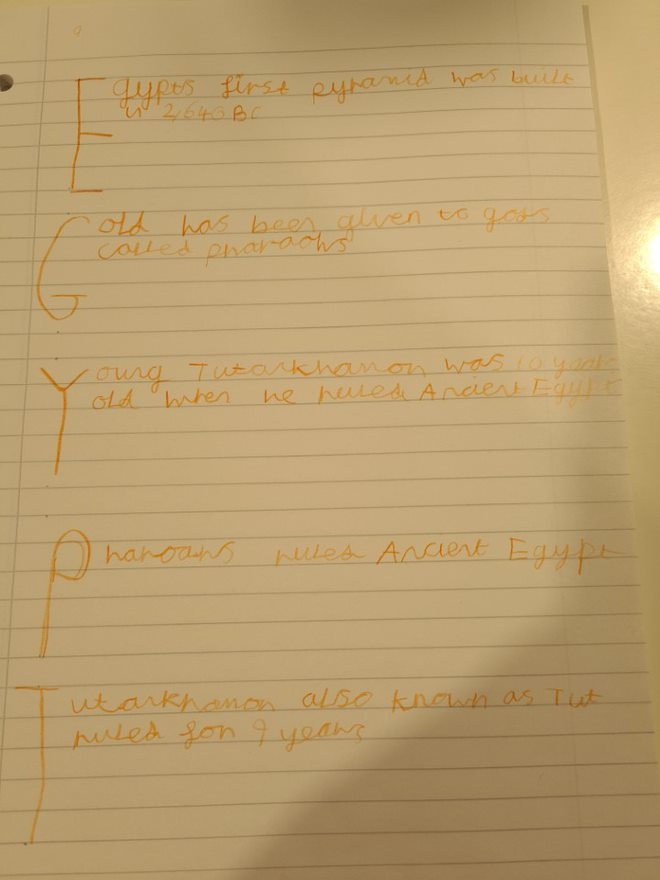 Egypts first pyramid was built
in 2,640 BC
Gold has been given to gods
called pharaohs
Young Tutarkhamon was 10 years
old when he ruled Ancient Egypt
Pharoahs ruled Ancient Egypt
Tutarkhamon also known as Tut
ruled for 9 years